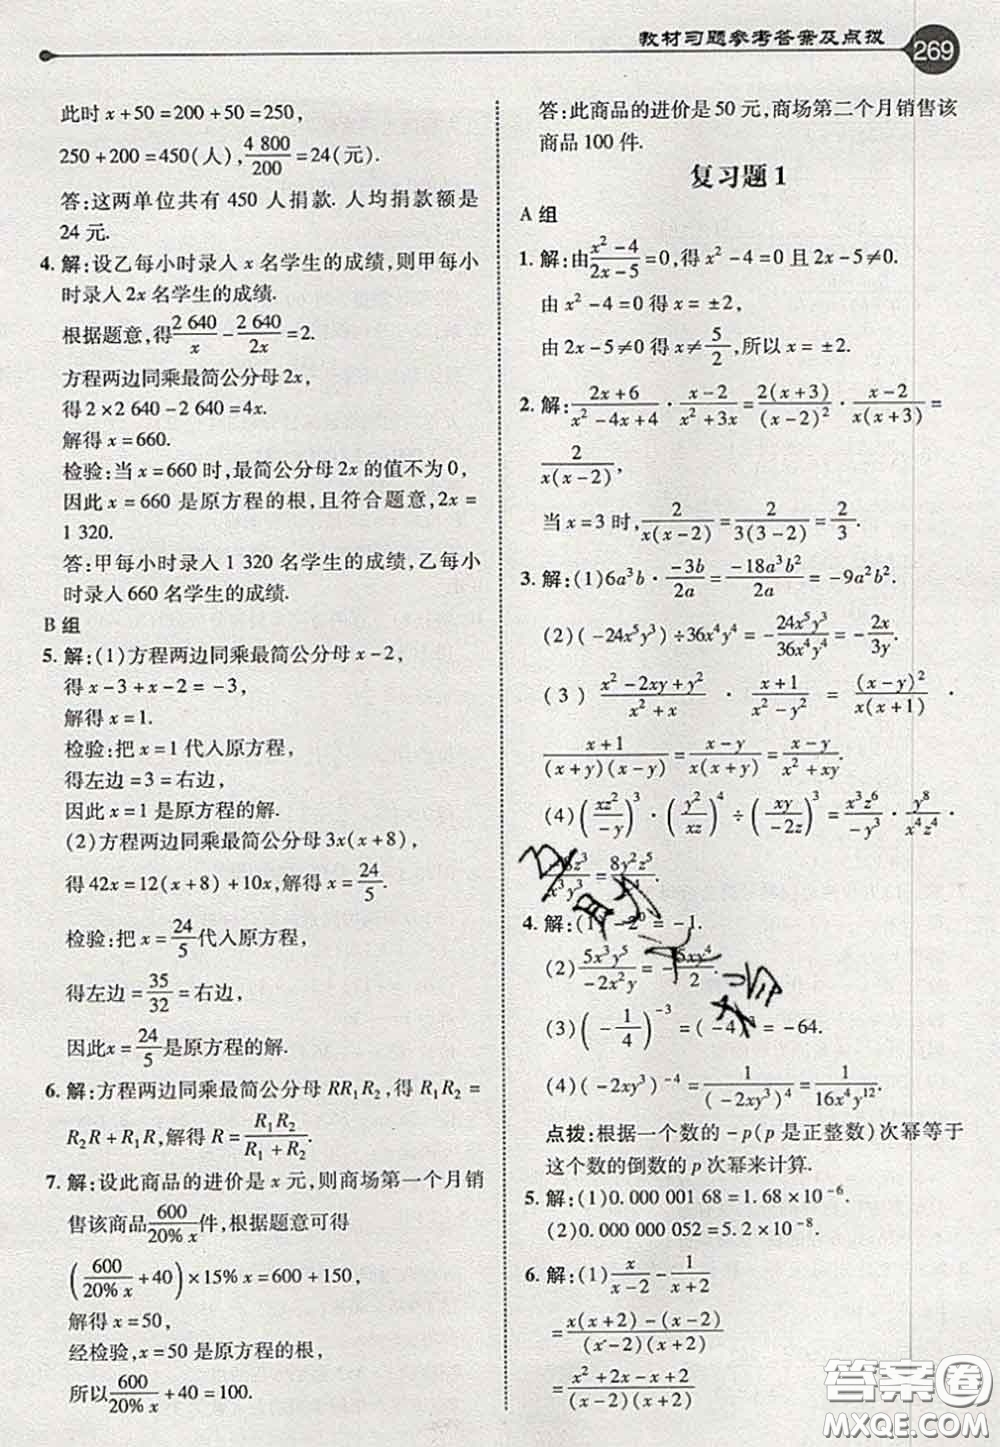 教材习题参考答案及点拨 269
此时 x+50=200+50=250,
250+200=450(人),4 800/200=24(元).
答:这两单位共有 450 人捐款. 人均捐款额是
24 元.
4. 解:设乙每小时录入 x 名学生的成绩,则甲每小
时录入 2x 名学生的成绩.
根据题意,得 2 640/x - 2 640/2x = 2.
方程两边同乘最简公分母 2x,
得 2×2 640-2 640=4x.
解得 x=660.
检验:当 x=660 时,最简公分母 2x 的值不为 0,
因此 x=660 是原方程的根,且符合题意,2x=
1 320.
答:甲每小时录入 1 320 名学生的成绩,乙每小
时录入 660 名学生的成绩.
B 组
5. 解:(1)方程两边同乘最简公分母 x-2,
得 x-3+x-2=-3,
解得 x=1.
检验:把 x=1 代入原方程,
得左边=3=右边,
因此 x=1 是原方程的解.
(2)方程两边同乘最简公分母 3x(x+8),
得 42x=12(x+8)+10x,解得 x=24/5.
检验:把 x=24/5 代入原方程,
得左边=35/32=右边,
因此 x=24/5 是原方程的解.
6. 解:方程两边同乘最简公分母 RR₁R₂,得 R₁R₂=
R₂R+R₁R,解得 R=R₁R₂/(R₁+R₂).
7. 解:设此商品的进价是 x 元,则商场第一个月销
售该商品 600/(20% x) 件,根据题意可得
(600/(20% x)+40)×15% x=600+150,
解得 x=50,
经检验,x=50 是原方程的根,
所以 600/(20% x)+40=100.
答:此商品的进价是 50 元,商场第二个月销售该
商品 100 件.
复习题 1
A 组
1. 解:由 (x²-4)/(2x-5)=0,得 x²-4=0 且 2x-5≠0.
由 x²-4=0 得 x=±2,
由 2x-5≠0 得 x≠5/2,所以 x=±2.
2. 解:(2x+6)/(x²-4x+4)·(x-2)/(x²+3x)=2(x+3)/(x-2)²·(x-2)/x(x+3)=
2/x(x-2),
当 x=3 时,2/x(x-2)=2/3(3-2)=2/3.
3. 解:(1)6a³b·(-3b)/2a=(-18a³b²)/2a=-9a²b².
(2)(-24x⁵y³)÷36x⁴y⁴=-24x⁵y³/36x⁴y⁴=-2x/3y.
(3)(x²-2xy+y²)/(x²+x)·(x+1)/(x²-y²)=(x-y)²/x(x+1)·
(x+1)/(x+y)(x-y)=(x-y)/x(x+y)=(x-y)/(x²+xy).
(4)(xz²/-y)³·(y²/xz)⁴÷(xy/-2z)³=x³z⁶/-y³·y⁸/x⁴z⁴·
-8z³/x³y³=8y²z⁵/
4. 解:(1)-2⁰=-1.
(2)5x³y⁵/-2x²y=-5xy⁴/2.
(3)(-1/4)⁻³=(-4)³=-64.
(4)(-2xy³)⁻⁴=1/(-2xy³)⁴=1/16x⁴y¹².
点拨:根据一个数的-p(p 是正整数)次幂等于
这个数的倒数的 p 次幂来计算.
5. 解:(1)0.000 001 68=1.68×10⁻⁶.
(2)0.000 000 052=5.2×10⁻⁸.
6. 解:(1)x/(x-2)-1/(x+2)
=(x(x+2)-(x-2))/(x-2)(x+2)
=(x²+2x-x+2)/(x-2)(x+2)
答案圈
MXQE.COM